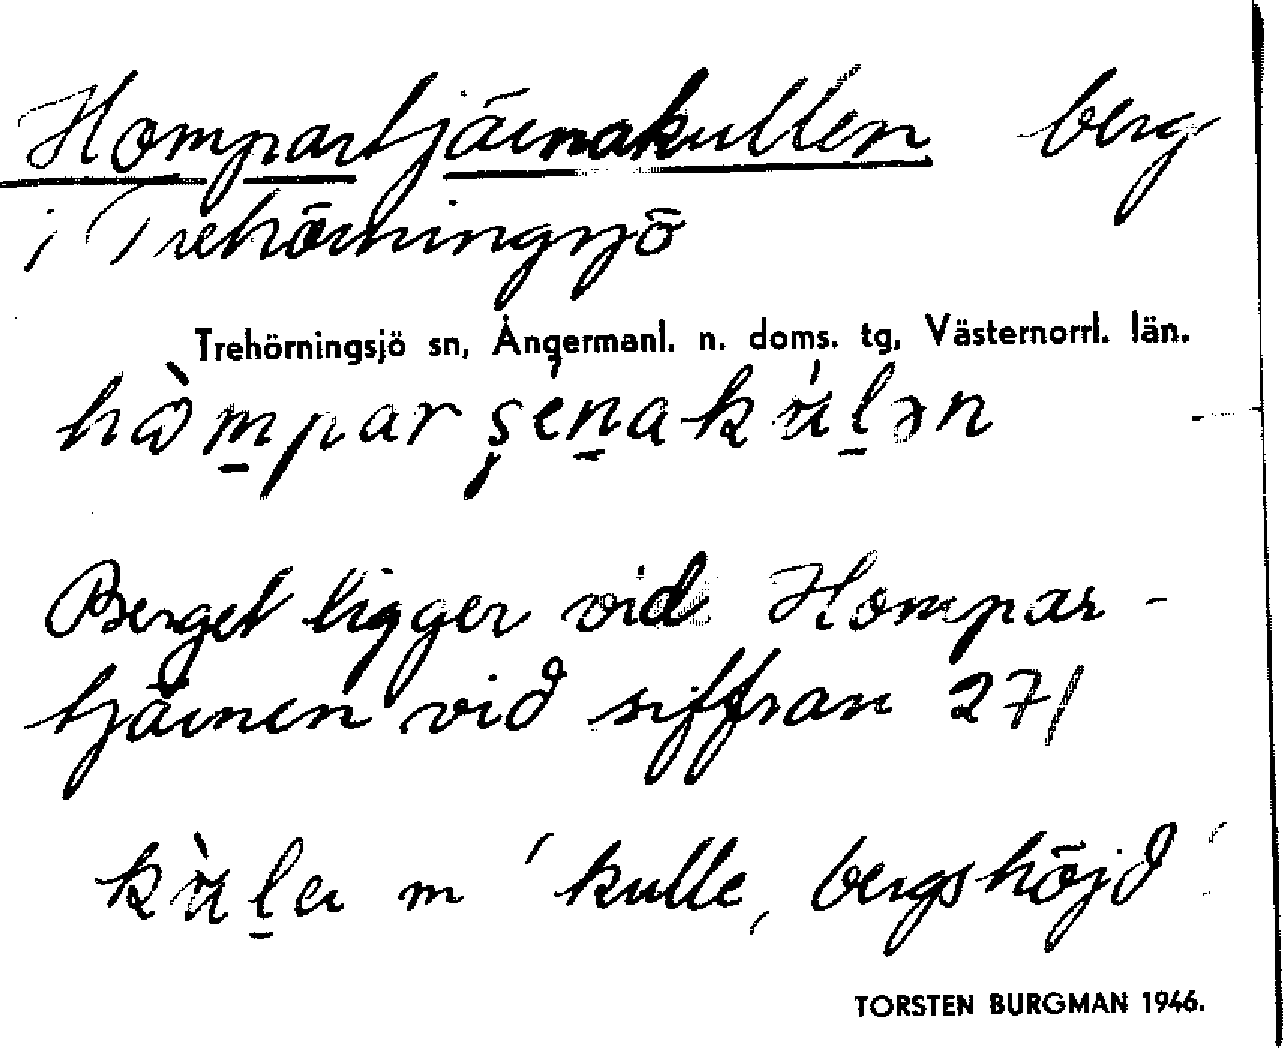 Hompartjärnakullen berg
i Trehörningsjö
Trehörningsjö sn, Ångermanl. n. doms. tg, Västernorrl. län.
Berget ligger vid Hompar-
tjärnen vid siffran 271
m 'kulle, bergshöjd'
TORSTEN BURGMAN 1946.